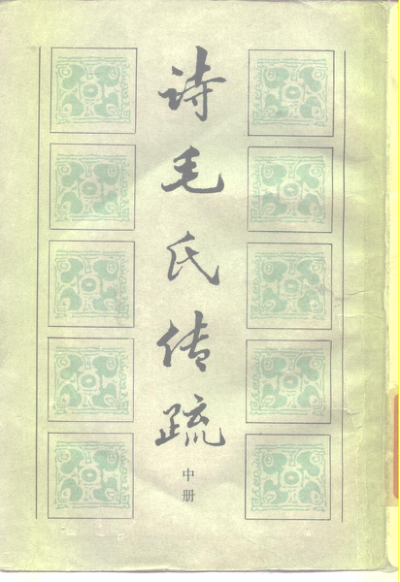 诗毛氏传疏
中册